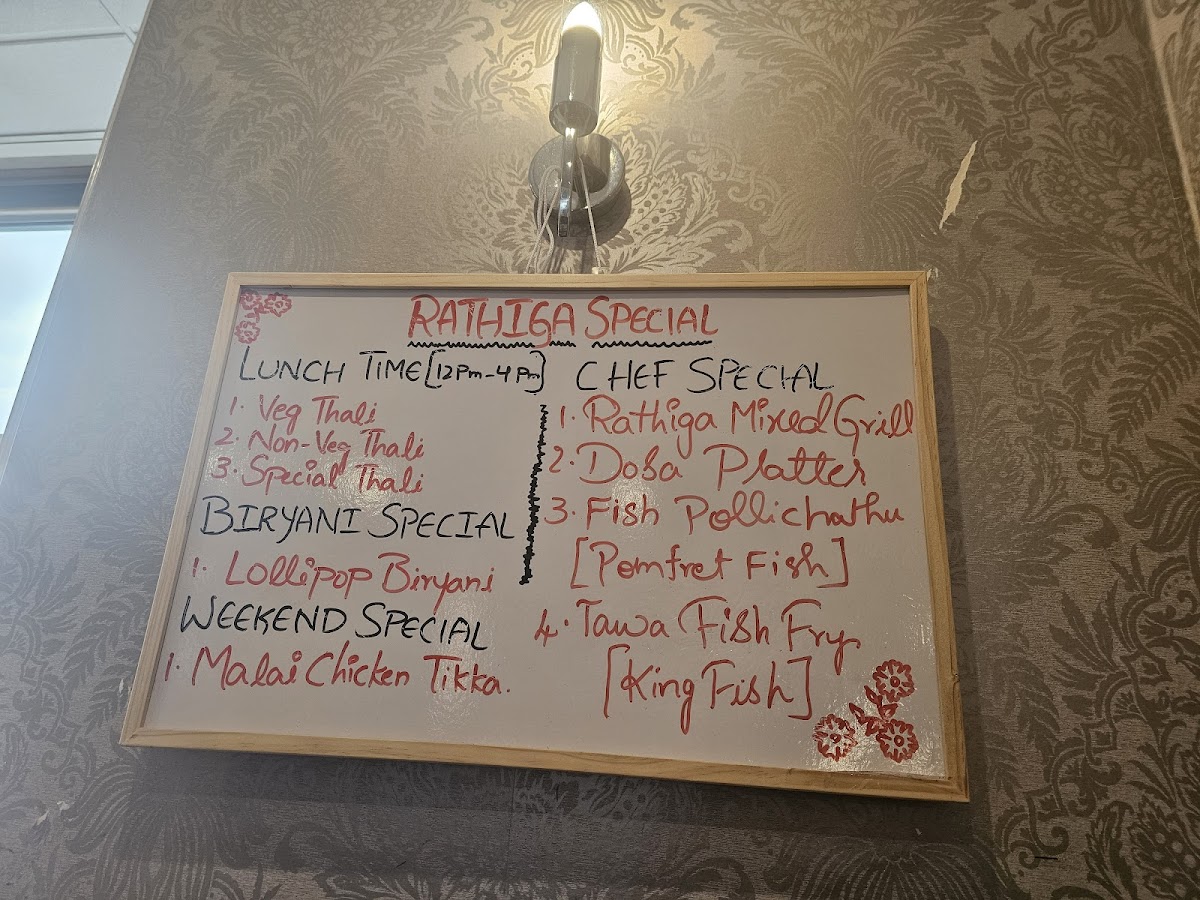 RATHIGA SPECIAL
LUNCH TIME [12 Pm - 4 Pm]
1. Veg Thali
2. Non-Veg Thali
3. Special Thali
BIRYANI SPECIAL
1. Lollipop Biryani
WEEKEND SPECIAL
1. Malai Chicken Tikka.
CHEF SPECIAL
1. Rathiga Mixed Grill
2. Dosa Platter
3. Fish Pollichathu
[Pomfret Fish]
4. Tawa Fish Fry
[King Fish]